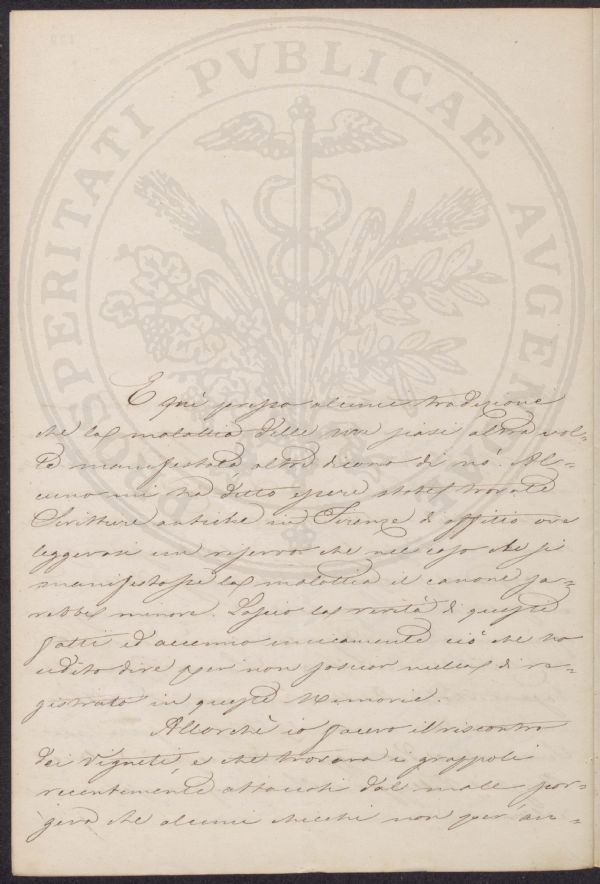 PROSPERITATI PVBLICAE AVGENDAE
E qui presso alcuni tradizione
che la malattia delle uve siasi altra vol-
ta manifestata altri dicono di nò. Al-
cuno mi ha detto essere state trovate
Scritture antiche in Firenze d'affitto ove
leggevasi un riservo che nel caso che si
manifestasse la malattia il canone sa-
rebbe minore. Lascio la verità di questi
fatti ed accenno unicamente ciò che ho
udito dire per non lasciar nulla di re-
gistrato in queste Memorie.
Allorchè io facevo il riscontro
dei Vigneti, e che trovava i grappoli
recentemente attaccati dal male, por-
geva che alcuni chicchi non per an-